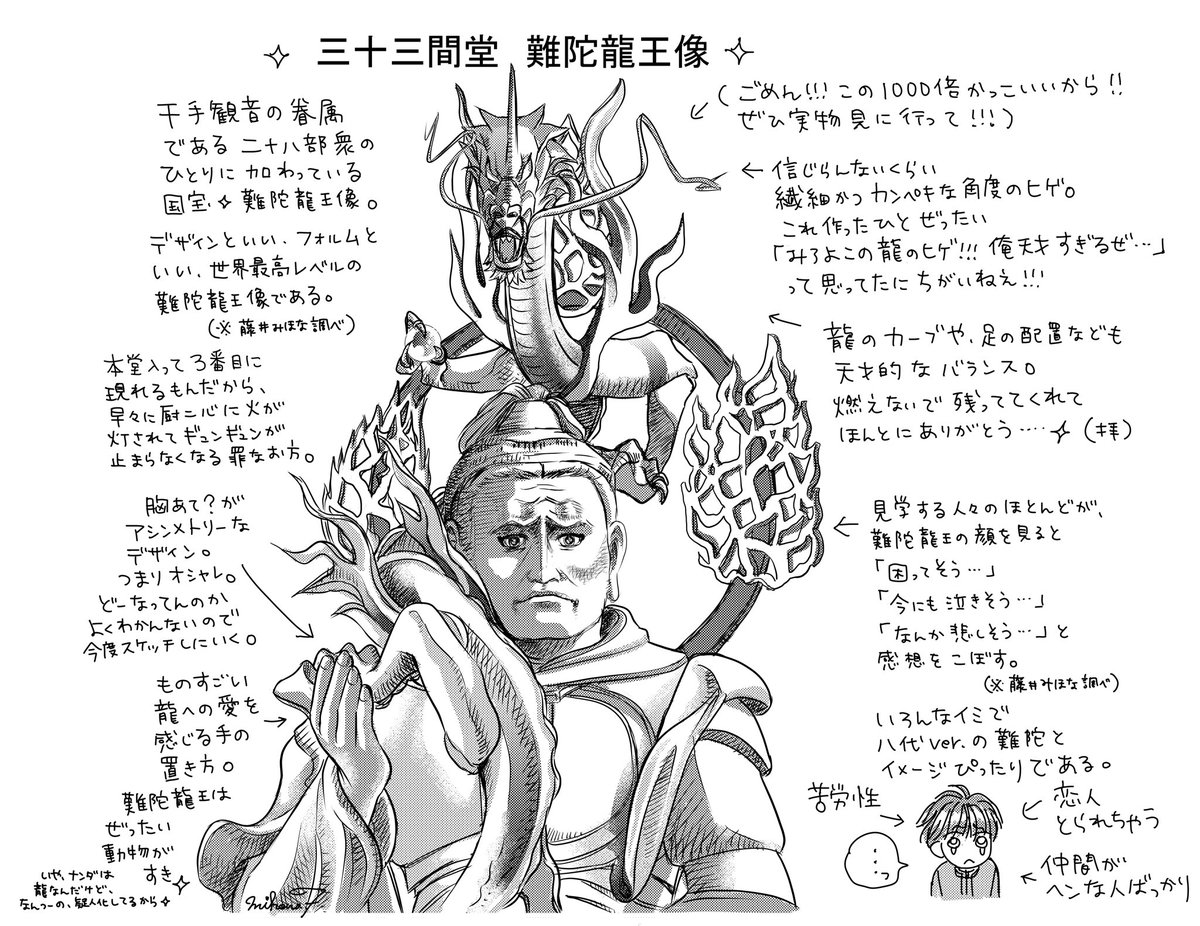 ✧ 三十三間堂 難陀龍王像 ✧
千手観音の眷属
である二十八部衆の
ひとりに加わっている
国宝✧難陀龍王像。
デザインといい、フォルムと
いい、世界最高レベルの
難陀龍王像である。
(※藤井みほな調べ)
本堂入って3番目に
現れるもんだから、
早々に厨二心に火が
灯されてギュンギュンが
止まらなくなる罪なお方。
胸あて?が
アシンメトリーな
デザイン。
つまりオシャレ。
どーなってんのか
よくわかんないので
今度スケッチしにいく。
ものすごい
龍への愛を
感じる手の
置き方。
難陀龍王は
ぜったい
動物が
すき✧
いや、ナンダは
龍なんだけど、
なんつーの、擬人化してるから✧
(ごめん!!! この1000倍かっこいいから!!
ぜひ実物見に行って!!!)
← 信じらんないくらい
繊細かつカンペキな角度のヒゲ。
これ作ったひとぜったい
「みろよこの龍のヒゲ!!! 俺天才すぎるぜ…」
って思ってたにちがいねえ!!!
龍のカーブや、足の配置なども
天才的なバランス。
燃えないで残っててくれて
ほんとにありがとう……✧(拝)
← 見学する人々のほとんどが、
難陀龍王の顔を見ると
「困ってそう…」
「今にも泣きそう…」
「なんか悲しそう…」と
感想をこぼす。
(※藤井みほな調べ)
いろんなイミで
八代ver.の難陀と
イメージぴったりである。
苦労性
…っ
恋人
とられちゃう
仲間が
ヘンな人ばっかり
Mihona F